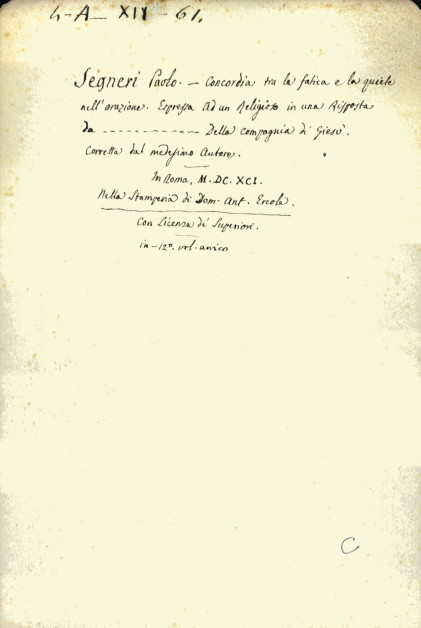 4-A-XII-61.
Segneri Paolo. — Concordia tra la fatica e la quiete
nell'orazione. Espressa ad un Religioso in una Risposta
da ------------- Della compagnia di Giesù.
Corretta dal medesimo Autore.
In Roma, M.DC.XCI.
Nella Stamperia di Dom. Ant. Ercole.
Con Licenza de' Superiori.
in-12°. vol. unico
C